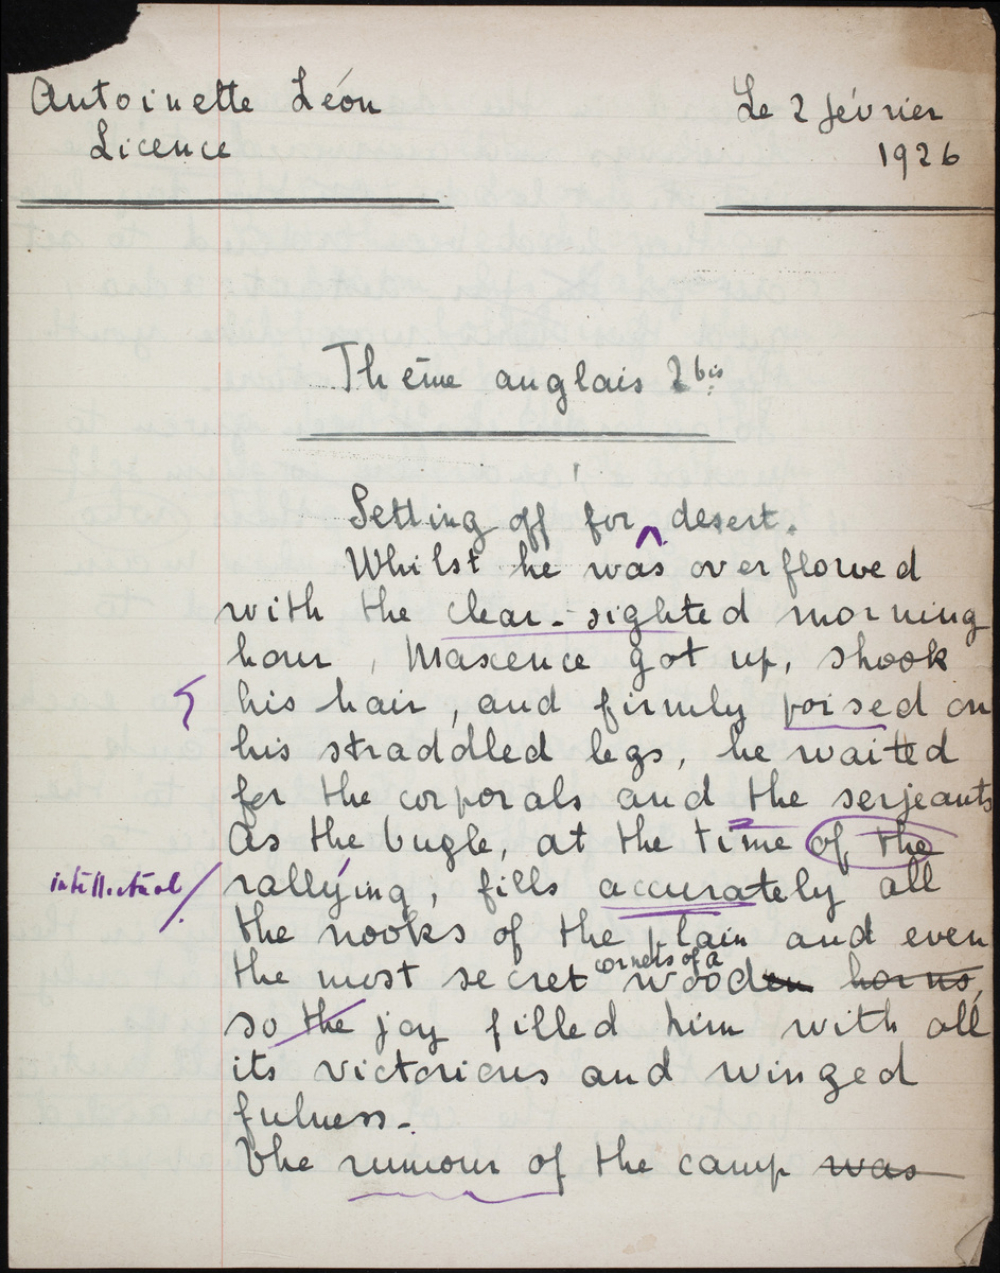 Antoinette Léon
Le 2 février
Licence
1926
Thème anglais 2 bis
Setting off for desert.
Whilst he was overflowed
with the clear-sighted morning
hour, Maxence got up, shook
his hair, and firmly poised on
his straddled legs, he waited
for the corporals and the serjeants
As the bugle, at the time of the
intellectual/
rallying, fills accurately all
the nooks of the plain and even
corners of a
the most secret wooden horns,
so the joy filled him with all
its victorious and winged
fulness.
The rumour of the camp was